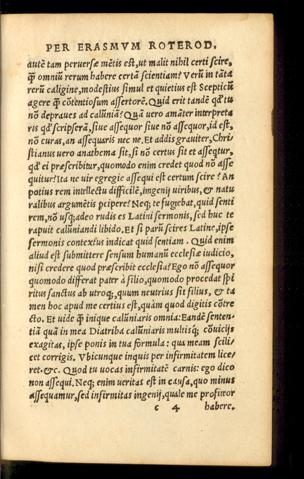 PER ERASMVM ROTEROD.
autē tam peruersæ mētis est, ut malit nihil certi scire,
q̃ omniū rerum habere certā scientiam? Verū in tāta
rerū caligine, modestius simul et quietius est Scepticū
agere q̃ cōtentiosum assertorē. Quid erit tandē qđ tu
nō depraues ad calūniā? Quā uero amāter interpreta
ris qđ scripserā, siue assequor siue nō assequor, id est,
nō curas, an assequaris nec ne. Et addis grauiter, Chri
stianus uero anathema sit, si nō certus sit et assequat̃,
qđ ei præscribitur, quomodo enim credet quod nō asse
quitur? Ita ne uir egregie assequi est certum scire? An
potius rem intellectu difficilē, ingenij uiribus, & natu
ralibus argumētis pcipere? Neq; te fugiebat, quid senti
rem, nō usq; adeo rudis es Latini sermonis, sed huc te
rapuit calūniandi libido. Et si parū scires Latine, ipse
sermonis contextus indicat quid sentiam. Quid enim
aliud est submittere sensum humanū ecclesiæ iudicio,
nisi credere quod præscribit ecclesia? Ego nō assequor
quomodo differat pater à filio, quomodo procedat spi
ritus sanctus ab utroq;, quum neutrius sit filius, & ta
men hoc apud me certius est, quàm quod digitis cōtre
cto. Et uide q̃ inique calūniaris omnia: Eandē senten-
tiā quā in mea Diatriba calūniaris multisq; cōuicijs
exagitas, ipse ponis in tua formula: qua meam scili-
cet corrigis. Vbicunque inquis per infirmitatem lice/
ret. &c. Quod tu uocas infirmitatē carnis: ego dico
non assequi. Neq; enim ueritas est in causa, quo minus
assequamur, sed infirmitas ingenij, quale me profiteor
c 4 habere.